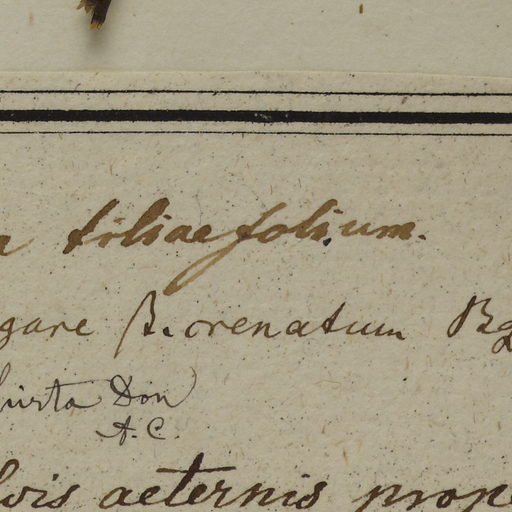 tiliaefolium.
gare β. crenatum Bg
hirta Don
A. C.
vis aeternis prope